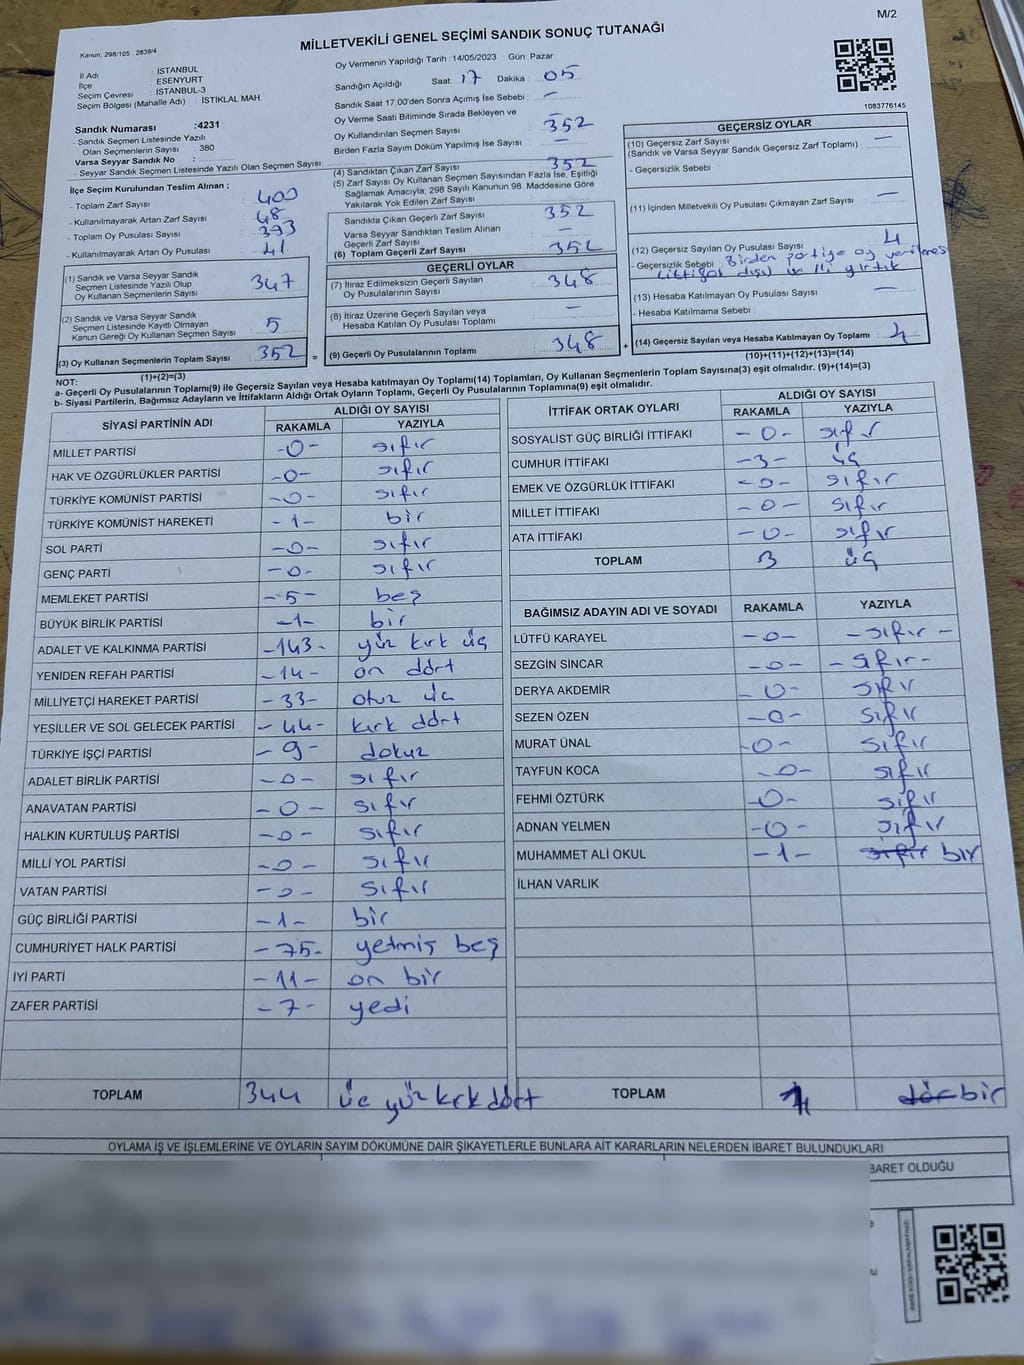 M/2
Kanun, 298/105 , 2839/4
MİLLETVEKİLİ GENEL SEÇİMİ SANDIK SONUÇ TUTANAĞI
İl Adı İSTANBUL
İlçe ESENYURT
Seçim Çevresi İSTANBUL-3
Seçim Bölgesi (Mahalle Adı) : İSTİKLAL MAH.
Oy Vermenin Yapıldığı Tarih : 14/05/2023 Gün: Pazar
Sandığın Açıldığı Saat: 17 Dakika : 05
Sandık Saat 17.00'den Sonra Açımış İse Sebebi : —
Oy Verme Saati Bitiminde Sırada Bekleyen ve
Oy Kullandırılan Seçmen Sayısı : 352
Birden Fazla Sayım Döküm Yapılmış İse Sayısı : —
1083776145
Sandık Numarası :4231
- Sandık Seçmen Listesinde Yazılı
Olan Seçmenlerin Sayısı : 380
Varsa Seyyar Sandık No :
- Seyyar Sandık Seçmen Listesinde Yazılı Olan Seçmen Sayısı :
İlçe Seçim Kurulundan Teslim Alınan ;
- Toplam Zarf Sayısı : 400
- Kullanılmayarak Artan Zarf Sayısı : 48
- Toplam Oy Pusulası Sayısı : 393
- Kullanılmayarak Artan Oy Pusulası : 41
(1) Sandık ve Varsa Seyyar Sandık
Seçmen Listesinde Yazılı Olup
Oy Kullanan Seçmenlerin Sayısı : 347
(2) Sandık ve Varsa Seyyar Sandık
Seçmen Listesinde Kayıtlı Olmayan
Kanun Gereği Oy Kullanan Seçmen Sayısı : 5
(3) Oy Kullanan Seçmenlerin Toplam Sayısı : 352
(1)+(2)=(3)
(4) Sandıktan Çıkan Zarf Sayısı : 352
(5) Zarf Sayısı Oy Kullanan Seçmen Sayısından Fazla İse, Eşitliği
Sağlamak Amacıyla; 298 Sayılı Kanunun 98. Maddesine Göre
Yakılarak Yok Edilen Zarf Sayısı :
Sandıkta Çıkan Geçerli Zarf Sayısı : 352
Varsa Seyyar Sandıktan Teslim Alınan
Geçerli Zarf Sayısı : —
(6) Toplam Geçerli Zarf Sayısı : 352
GEÇERLİ OYLAR
(7) İtiraz Edilmeksizin Geçerli Sayılan
Oy Pusulalarının Sayısı : 348
(8) İtiraz Üzerine Geçerli Sayılan veya
Hesaba Katılan Oy Pusulası Toplamı : —
= (9) Geçerli Oy Pusulalarının Toplamı : 348
GEÇERSİZ OYLAR
(10) Geçersiz Zarf Sayısı : —
(Sandık ve Varsa Seyyar Sandık Geçersiz Zarf Toplamı)
- Geçersizlik Sebebi :
(11) İçinden Milletvekili Oy Pusulası Çıkmayan Zarf Sayısı : —
(12) Geçersiz Sayılan Oy Pusulası Sayısı : 4
- Geçersizlik Sebebi : Birden partiye oy
(13) Hesaba Katılmayan Oy Pusulası Sayısı : —
- Hesaba Katılmama Sebebi :
+ (14) Geçersiz Sayılan veya Hesaba Katılmayan Oy Toplamı : 4
(10)+(11)+(12)+(13)=(14)
NOT:
a- Geçerli Oy Pusulaları Toplamı(9) ile Geçersiz Sayılan veya Hesaba katılmayan Oy Toplamı(14) Toplamları, Oy Kullanan Seçmenlerin Toplam Sayısına(3) eşit olmalıdır. (9)+(14)=(3)
b- Siyasi Partilerin, Bağımsız Adayların ve İttifakların Aldığı Ortak Oyların Toplamı, Geçerli Oy Pusulalarının Toplamına(9) eşit olmalıdır.
SİYASİ PARTİNİN ADI ALDIĞI OY SAYISI
RAKAMLA YAZIYLA
MİLLET PARTİSİ -0- sıfır
HAK VE ÖZGÜRLÜKLER PARTİSİ -0- sıfır
TÜRKİYE KOMÜNİST PARTİSİ -0- sıfır
TÜRKİYE KOMÜNİST HAREKETİ -1- bir
SOL PARTİ -0- sıfır
GENÇ PARTİ -0- sıfır
MEMLEKET PARTİSİ -5- beş
BÜYÜK BİRLİK PARTİSİ -1- bir
ADALET VE KALKINMA PARTİSİ -143- yüz kırk üç
YENİDEN REFAH PARTİSİ -14- on dört
MİLLİYETÇİ HAREKET PARTİSİ -33- otuz üç
YEŞİLLER VE SOL GELECEK PARTİSİ -44- kırk dört
TÜRKİYE İŞÇİ PARTİSİ -9- dokuz
ADALET BİRLİK PARTİSİ -0- sıfır
ANAVATAN PARTİSİ -0- sıfır
HALKIN KURTULUŞ PARTİSİ -0- sıfır
MİLLİ YOL PARTİSİ -0- sıfır
VATAN PARTİSİ -0- sıfır
GÜÇ BİRLİĞİ PARTİSİ -1- bir
CUMHURİYET HALK PARTİSİ -75- yetmiş beş
İYİ PARTİ -11- on bir
ZAFER PARTİSİ -7- yedi
TOPLAM 344 üç yüz kırk dört
İTTİFAK ORTAK OYLARI ALDIĞI OY SAYISI
RAKAMLA YAZIYLA
SOSYALİST GÜÇ BİRLİĞİ İTTİFAKI -0- sıfır
CUMHUR İTTİFAKI -3- üç
EMEK VE ÖZGÜRLÜK İTTİFAKI -0- sıfır
MİLLET İTTİFAKI -0- sıfır
ATA İTTİFAKI -0- sıfır
TOPLAM 3 üç
BAĞIMSIZ ADAYIN ADI VE SOYADI RAKAMLA YAZIYLA
LÜTFÜ KARAYEL -0- -sıfır-
SEZGİN SİNCAR -0- -sıfır-
DERYA AKDEMİR -0- sıfır
SEZEN ÖZEN -0- sıfır
MURAT ÜNAL -0- sıfır
TAYFUN KOCA -0- sıfır
FEHMİ ÖZTÜRK -0- sıfır
ADNAN YELMEN -0- sıfır
MUHAMMET ALİ OKUL -1- sıfır bir
İLHAN VARLIK
TOPLAM 1 dör bir
OYLAMA İŞ VE İŞLEMLERİNE VE OYLARIN SAYIM DÖKÜMÜNE DAİR ŞİKAYETLERLE BUNLARA AİT KARARLARIN NELERDEN İBARET BULUNDUKLARI
BARET OLDUĞU